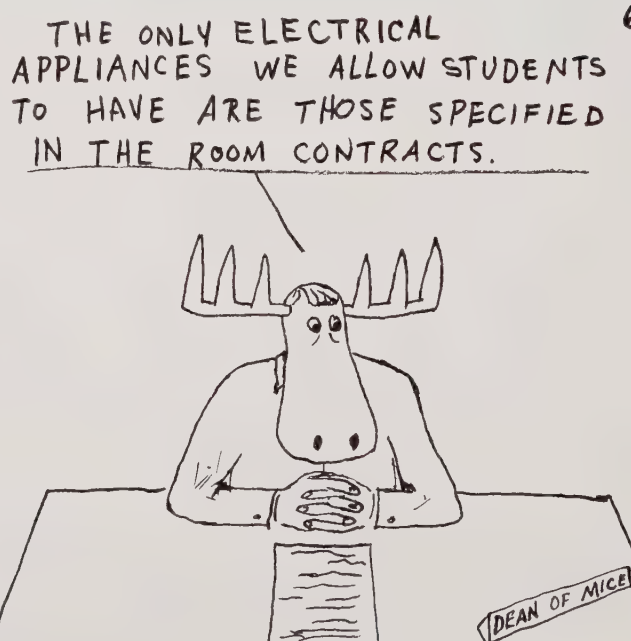 THE ONLY ELECTRICAL
APPLIANCES WE ALLOW STUDENTS
TO HAVE ARE THOSE SPECIFIED
IN THE ROOM CONTRACTS.
DEAN OF MICE